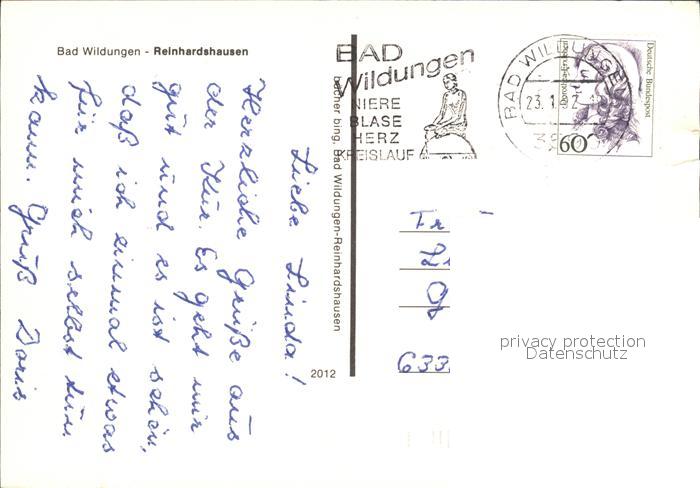 Bad Wildungen - Reinhardshausen
Liebe Linda!
Herzliche Grüße aus
der Kur. Es geht mir
gut und es ist schön,
daß ich einmal etwas
für mich selbst tun
kann. Gruß Doris
bucher bing, Bad Wildungen-Reinhardshausen
2012
BAD
Wildungen
NIERE
BLASE
HERZ
KREISLAUF
BAD WILDUNGEN
23.1.92
Deutsche Bundespost
60
Fr
L
g
633
privacy protection
Datenschutz